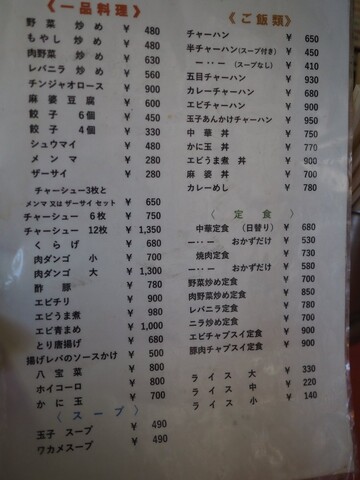 《一品料理》
野菜炒め ¥ 480
もやし炒め ¥ 480
肉野菜炒め ¥ 630
レバニラ炒め ¥ 560
チンジャオロース ¥ 900
麻婆豆腐 ¥ 600
餃子 6個 ¥ 450
餃子 4個 ¥ 330
シュウマイ ¥ 480
メンマ ¥ 280
ザーサイ ¥ 280
チャーシュー3枚と
メンマ 又は ザーサイ セット ¥ 650
チャーシュー 6枚 ¥ 750
チャーシュー 12枚 ¥ 1,350
くらげ ¥ 680
肉ダンゴ 小 ¥ 700
肉ダンゴ 大 ¥ 1,300
酢豚 ¥ 780
エビチリ ¥ 900
エビうま煮 ¥ 980
エビ青まめ ¥ 1,000
とり唐揚げ ¥ 680
揚げレバのソースかけ ¥ 500
八宝菜 ¥ 800
ホイコーロ ¥ 800
かに玉 ¥ 700
〈スープ〉
玉子 スープ ¥ 490
ワカメスープ ¥ 490
《ご飯類》
チャーハン ¥ 650
半チャーハン(スープ付き) ¥ 450
ー‥ー (スープなし) ¥ 410
五目チャーハン ¥ 930
カレーチャーハン ¥ 680
エビチャーハン ¥ 900
玉子あんかけチャーハン ¥ 950
中華丼 ¥ 750
かに玉丼 ¥ 770
エビうま煮丼 ¥ 900
麻婆丼 ¥ 700
カレーめし ¥ 780
〈定食〉
中華定食 (日替り) ¥ 680
ー‥ー おかずだけ ¥ 530
焼肉定食 ¥ 730
ー‥ー おかずだけ ¥ 580
野菜炒め定食 ¥ 700
肉野菜炒め定食 ¥ 850
レバニラ定食 ¥ 780
ニラ炒め定食 ¥ 700
エビチャプスイ定食 ¥ 900
豚肉チャプスイ定食 ¥ 900
ライス 大 ¥ 330
ライス 中 ¥ 220
ライス 小 ¥ 140